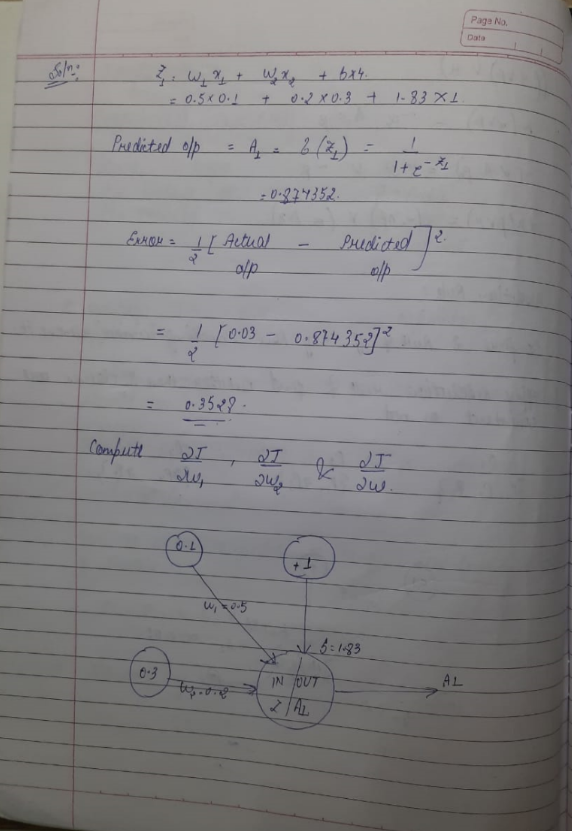 Page No.
Date
Soln:
Z1 = w1 x1 + w2 x2 + b×4.
= 0.5×0.1 + 0.2×0.3 + 1.83×1.
Predicted o/p = A1 = σ(Z1) = 1 / 1+e^-Z1
= 0.874352.
Error = 1/2 [Actual o/p - Predicted o/p]^2.
= 1/2 [0.03 - 0.874352]^2
= 0.352?.
Compute ∂I/∂w1 , ∂I/∂w2 & ∂I/∂w.
0.1
+1
w1 = 0.5
b=1.83
0.3
w2=0.2
IN / OUT
A1
Z / A1